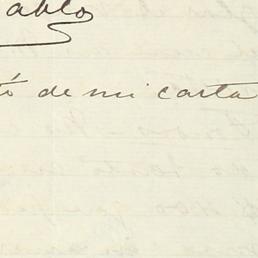 ablo
ó de mi carta